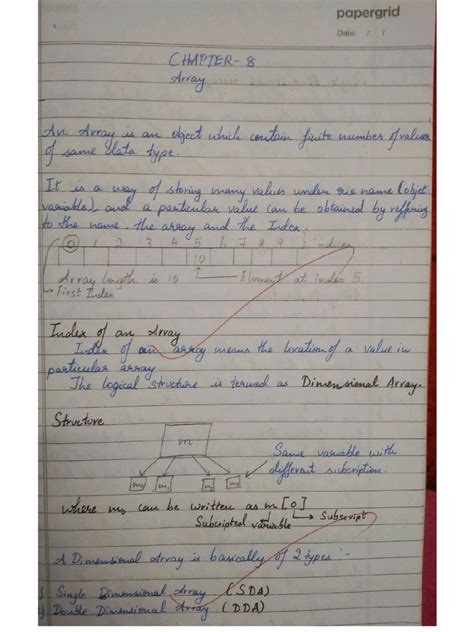 papergrid
Date: / /
CHAPTER-8
Array
An Array is an object which contain finite number of values
of same data type.
It is a way of storing many values under one name (object
variable) and a particular value can be obtained by reffering
to the name, the array and the Index.
0 1 2 3 4 5 6 7 8 9 indices
10
Array length is 10 Element at index 5
First Index
Index of an Array
Index of an array means the location of a value in
particular array
The logical structure is termed as Dimensional Array.
Structure
m
Same variable with
different subscription.
where m0 can be written as m[0]
Subcripted variable Subscript
A Dimensional Array is basically of 2 types :-
Single Dimensional Array (SDA)
Double Dimensional Array (DDA)